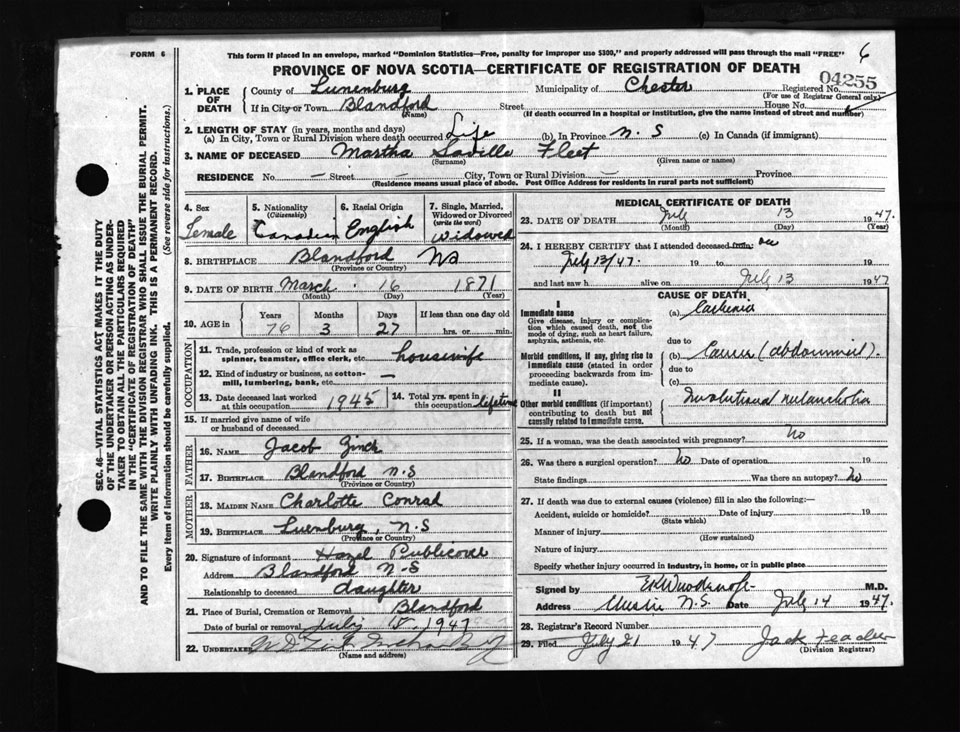 FORM 6
This form if placed in an envelope, marked "Dominion Statistics—Free, penalty for improper use $300," and properly addressed will pass through the mail "FREE" 6
PROVINCE OF NOVA SCOTIA—CERTIFICATE OF REGISTRATION OF DEATH
04255
1. PLACE OF DEATH
County of Lunenburg Municipality of Chester Registered No.
(For use of Registrar General only)
If in City or Town Blandford Street House No.
(Name) (If death occurred in a hospital or institution, give the name instead of street and number)
2. LENGTH OF STAY (in years, months and days)
(a) In City, Town or Rural Division where death occurred Life (b) In Province N. S (c) In Canada (if immigrant)
3. NAME OF DECEASED Martha Saville Fleet
(Surname) (Given name or names)
RESIDENCE No. — Street — City, Town or Rural Division — Province
(Residence means usual place of abode. Post Office Address for residents in rural parts not sufficient)
SEC. 46—VITAL STATISTICS ACT MAKES IT THE DUTY
OF THE UNDERTAKER OR PERSON ACTING AS UNDER-
TAKER TO OBTAIN ALL THE PARTICULARS REQUIRED
IN THE "CERTIFICATE OF REGISTRATION OF DEATH"
AND TO FILE THE SAME WITH THE DIVISION REGISTRAR WHO SHALL ISSUE THE BURIAL PERMIT.
WRITE PLAINLY WITH UNFADING INK. THIS IS A PERMANENT RECORD.
Every item of information should be carefully supplied. (See reverse side for instructions.)
4. Sex
Female
5. Nationality
(Citizenship)
Canadian
6. Racial Origin
English
7. Single, Married,
Widowed or Divorced
(write the word)
Widowed
8. BIRTHPLACE Blandford NS
(Province or Country)
9. DATE OF BIRTH March 16 1871
(Month) (Day) (Year)
10. AGE in
Years Months Days If less than one day old
76 3 27 hrs. or min.
OCCUPATION
11. Trade, profession or kind of work as
spinner, teamster, office clerk, etc. housewife
12. Kind of industry or business, as cotton-
mill, lumbering, bank, etc. —
13. Date deceased last worked
at this occupation 1945
14. Total yrs. spent in
this occupation lifetime
15. If married give name of wife
or husband of deceased
FATHER
16. NAME Jacob Zinck
17. BIRTHPLACE Blandford N.S
(Province or Country)
MOTHER
18. MAIDEN NAME Charlotte Conrad
19. BIRTHPLACE Luenburg, N.S
(Province or Country)
20. Signature of informant Hazel Publicover
Address Blandford N-S
Relationship to deceased daughter
21. Place of Burial, Cremation or Removal Blandford
Date of burial or removal July 1947
22. UNDERTAKER
(Name and address)
MEDICAL CERTIFICATE OF DEATH
23. DATE OF DEATH July 13 1947.
(Month) (Day) (Year)
24. I HEREBY CERTIFY that I attended deceased from: on
July 13/47. 19 to 19
and last saw h alive on July 13 1947
CAUSE OF DEATH
I
Immediate cause
Give disease, injury or complica-
tion which caused death, not the
mode of dying, such as heart failure,
asphyxia, asthenia, etc.
(a) Cachexia
due to
Morbid conditions, if any, giving rise to
immediate cause (stated in order
proceeding backwards from im-
mediate cause).
(b) Cancer (abdominal).
due to
(c)
II
Other morbid conditions (if important)
contributing to death but not
causally related to immediate cause.
Involutional melancholia
25. If a woman, was the death associated with pregnancy? No
26. Was there a surgical operation? No Date of operation 19
State findings Was there an autopsy? No
27. If death was due to external causes (violence) fill in also the following:—
Accident, suicide or homicide? Date of injury 19
(State which)
Manner of injury
(How sustained)
Nature of injury
Specify whether injury occurred in industry, in home, or in public place
Signed by M.D.
Address N.S. Date July 14 1947.
28. Registrar's Record Number
29. Filed July 21 1947 Jack Feader
(Division Registrar)